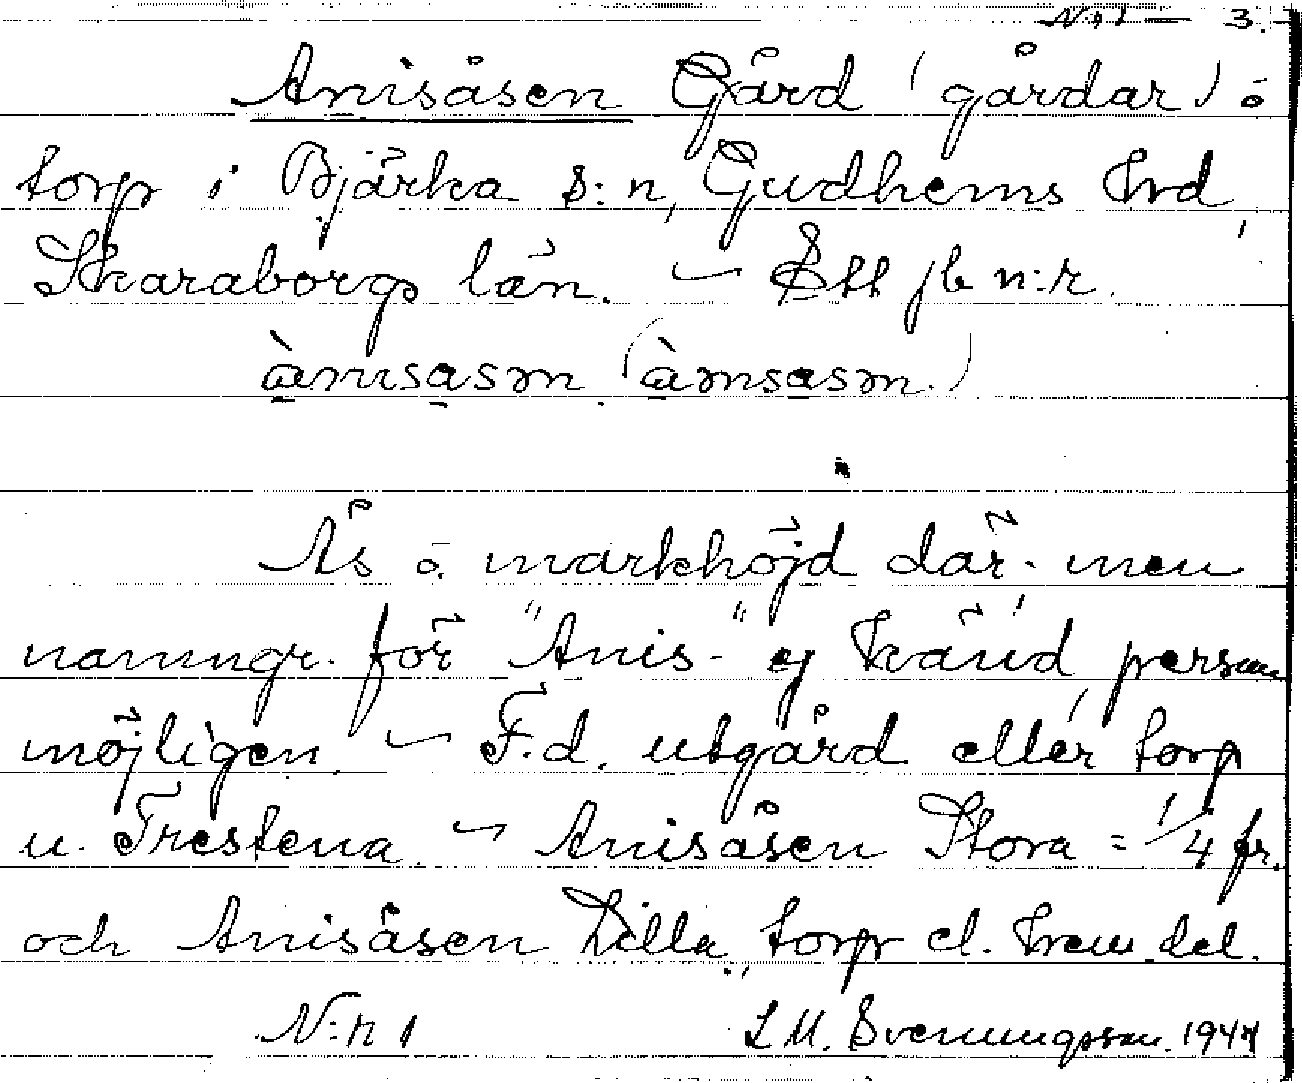 N:r 1 — 3.
Anisåsen Gård (gårdar) o
torp i Bjärka s:n, Gudhems Hrd,
Skaraborgs län. — Ett jb n:r.
ànisasm (àmsasm.)
Ås o. markhöjd där. men
namngr. för "Anis-" ej känd, person
möjligen — F.d. utgård eller torp
u. Trestena — Anisåsen Stora = 1/4 fr.
och Anisåsen Lilla, torp el. hem.del.
N:r 1 L M. Svenungsson. 1944